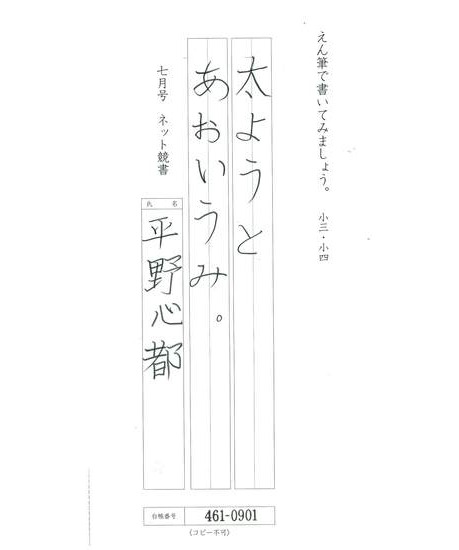 えん筆で書いてみましょう。　小三・小四
太ようと
あおいうみ。
七月号　ネット競書
氏名
平野心都
台帳番号
461-0901
(コピー不可)